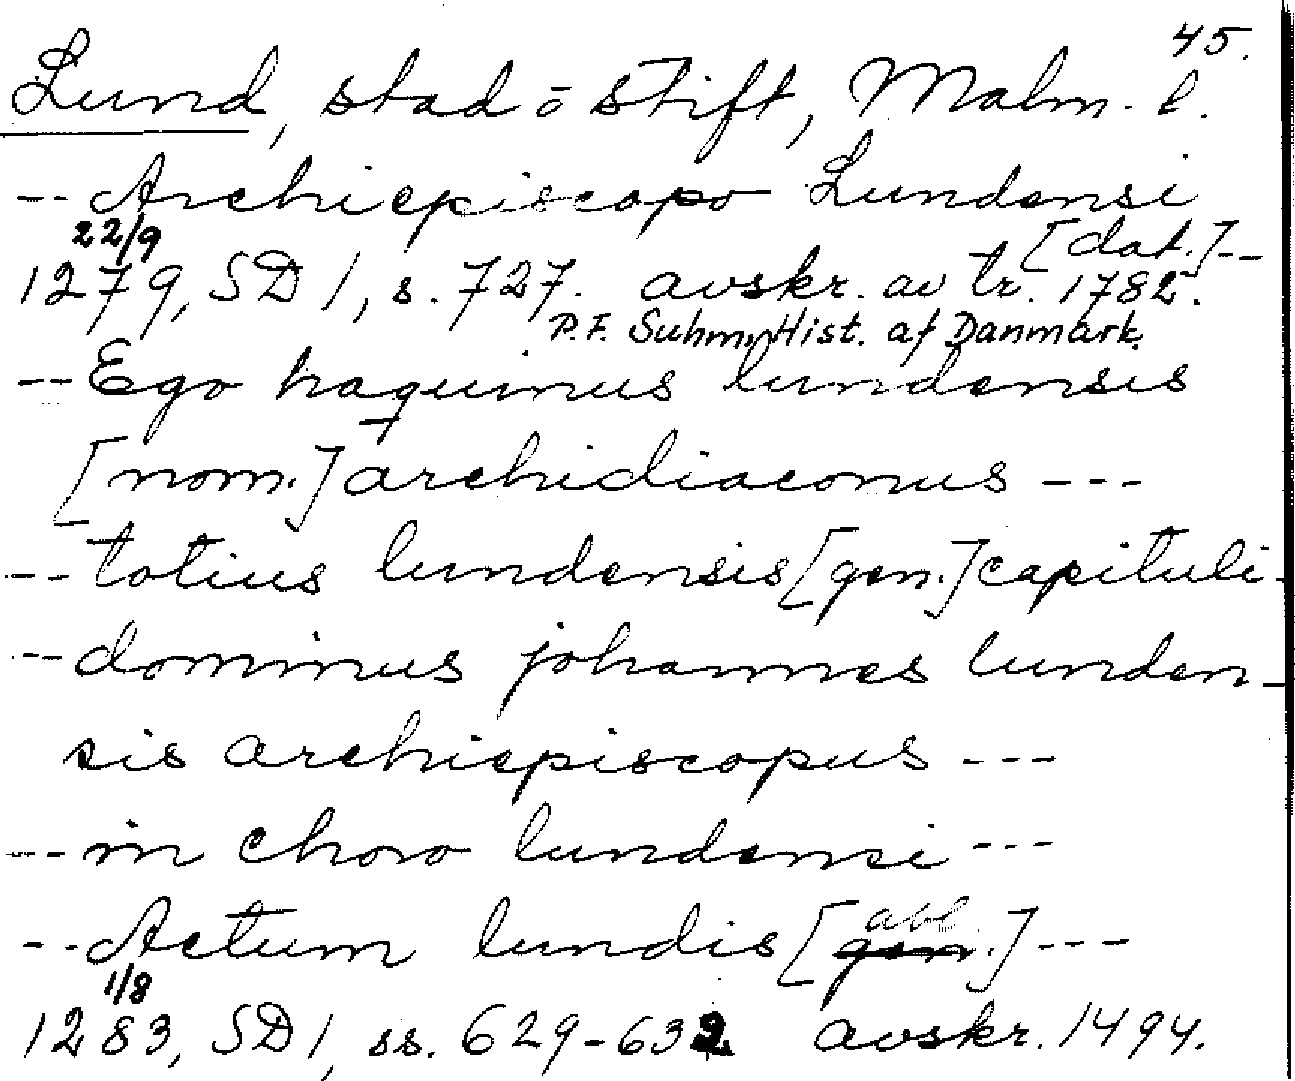 45.
Lund, stad o stift, Malm. l.
-- Archiepiscopo Lundensi
[dat.]--
22/9
1279, SD 1, s. 727. avskr. av tr. 1782.
P.F. Suhm, Hist. af Danmark.
-- Ego haquinus lundensis
[nom.] archidiaconus ---
-- totius lundensis [gen.] capituli -
-- dominus johannes lunden-
sis archiepiscopus ---
-- in choro lundensi ---
-- Actum lundis [gen. abl.] ---
1/8
1283, SD 1, ss. 629-632 avskr. 1494.